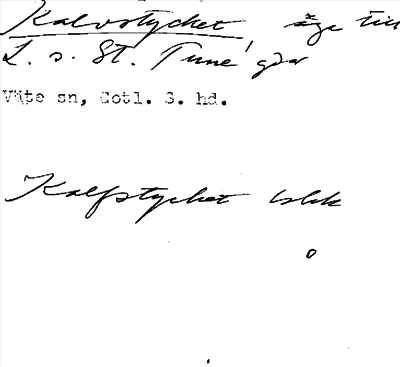 Kalvstycket, äga till
L. o. St. Tune gdr
Väte sn, Gotl. S. hd.
Kalfstycket